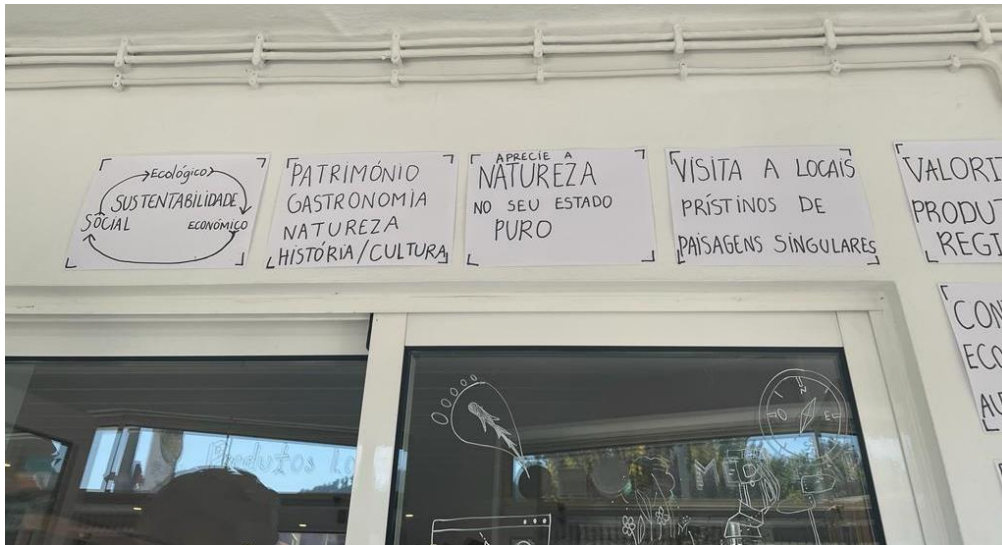 Ecológico
SUSTENTABILIDADE
SOCIAL
ECONÓMICO
PATRIMÓNIO
GASTRONOMIA
NATUREZA
HISTÓRIA/CULTURA
APRECIE A
NATUREZA
NO SEU ESTADO
PURO
VISITA A LOCAIS
PRÍSTINOS DE
PAISAGENS SINGULARES
VALORI
PRODUT
REGI
CON
ECO
Produtos Lo
N
O E
ME